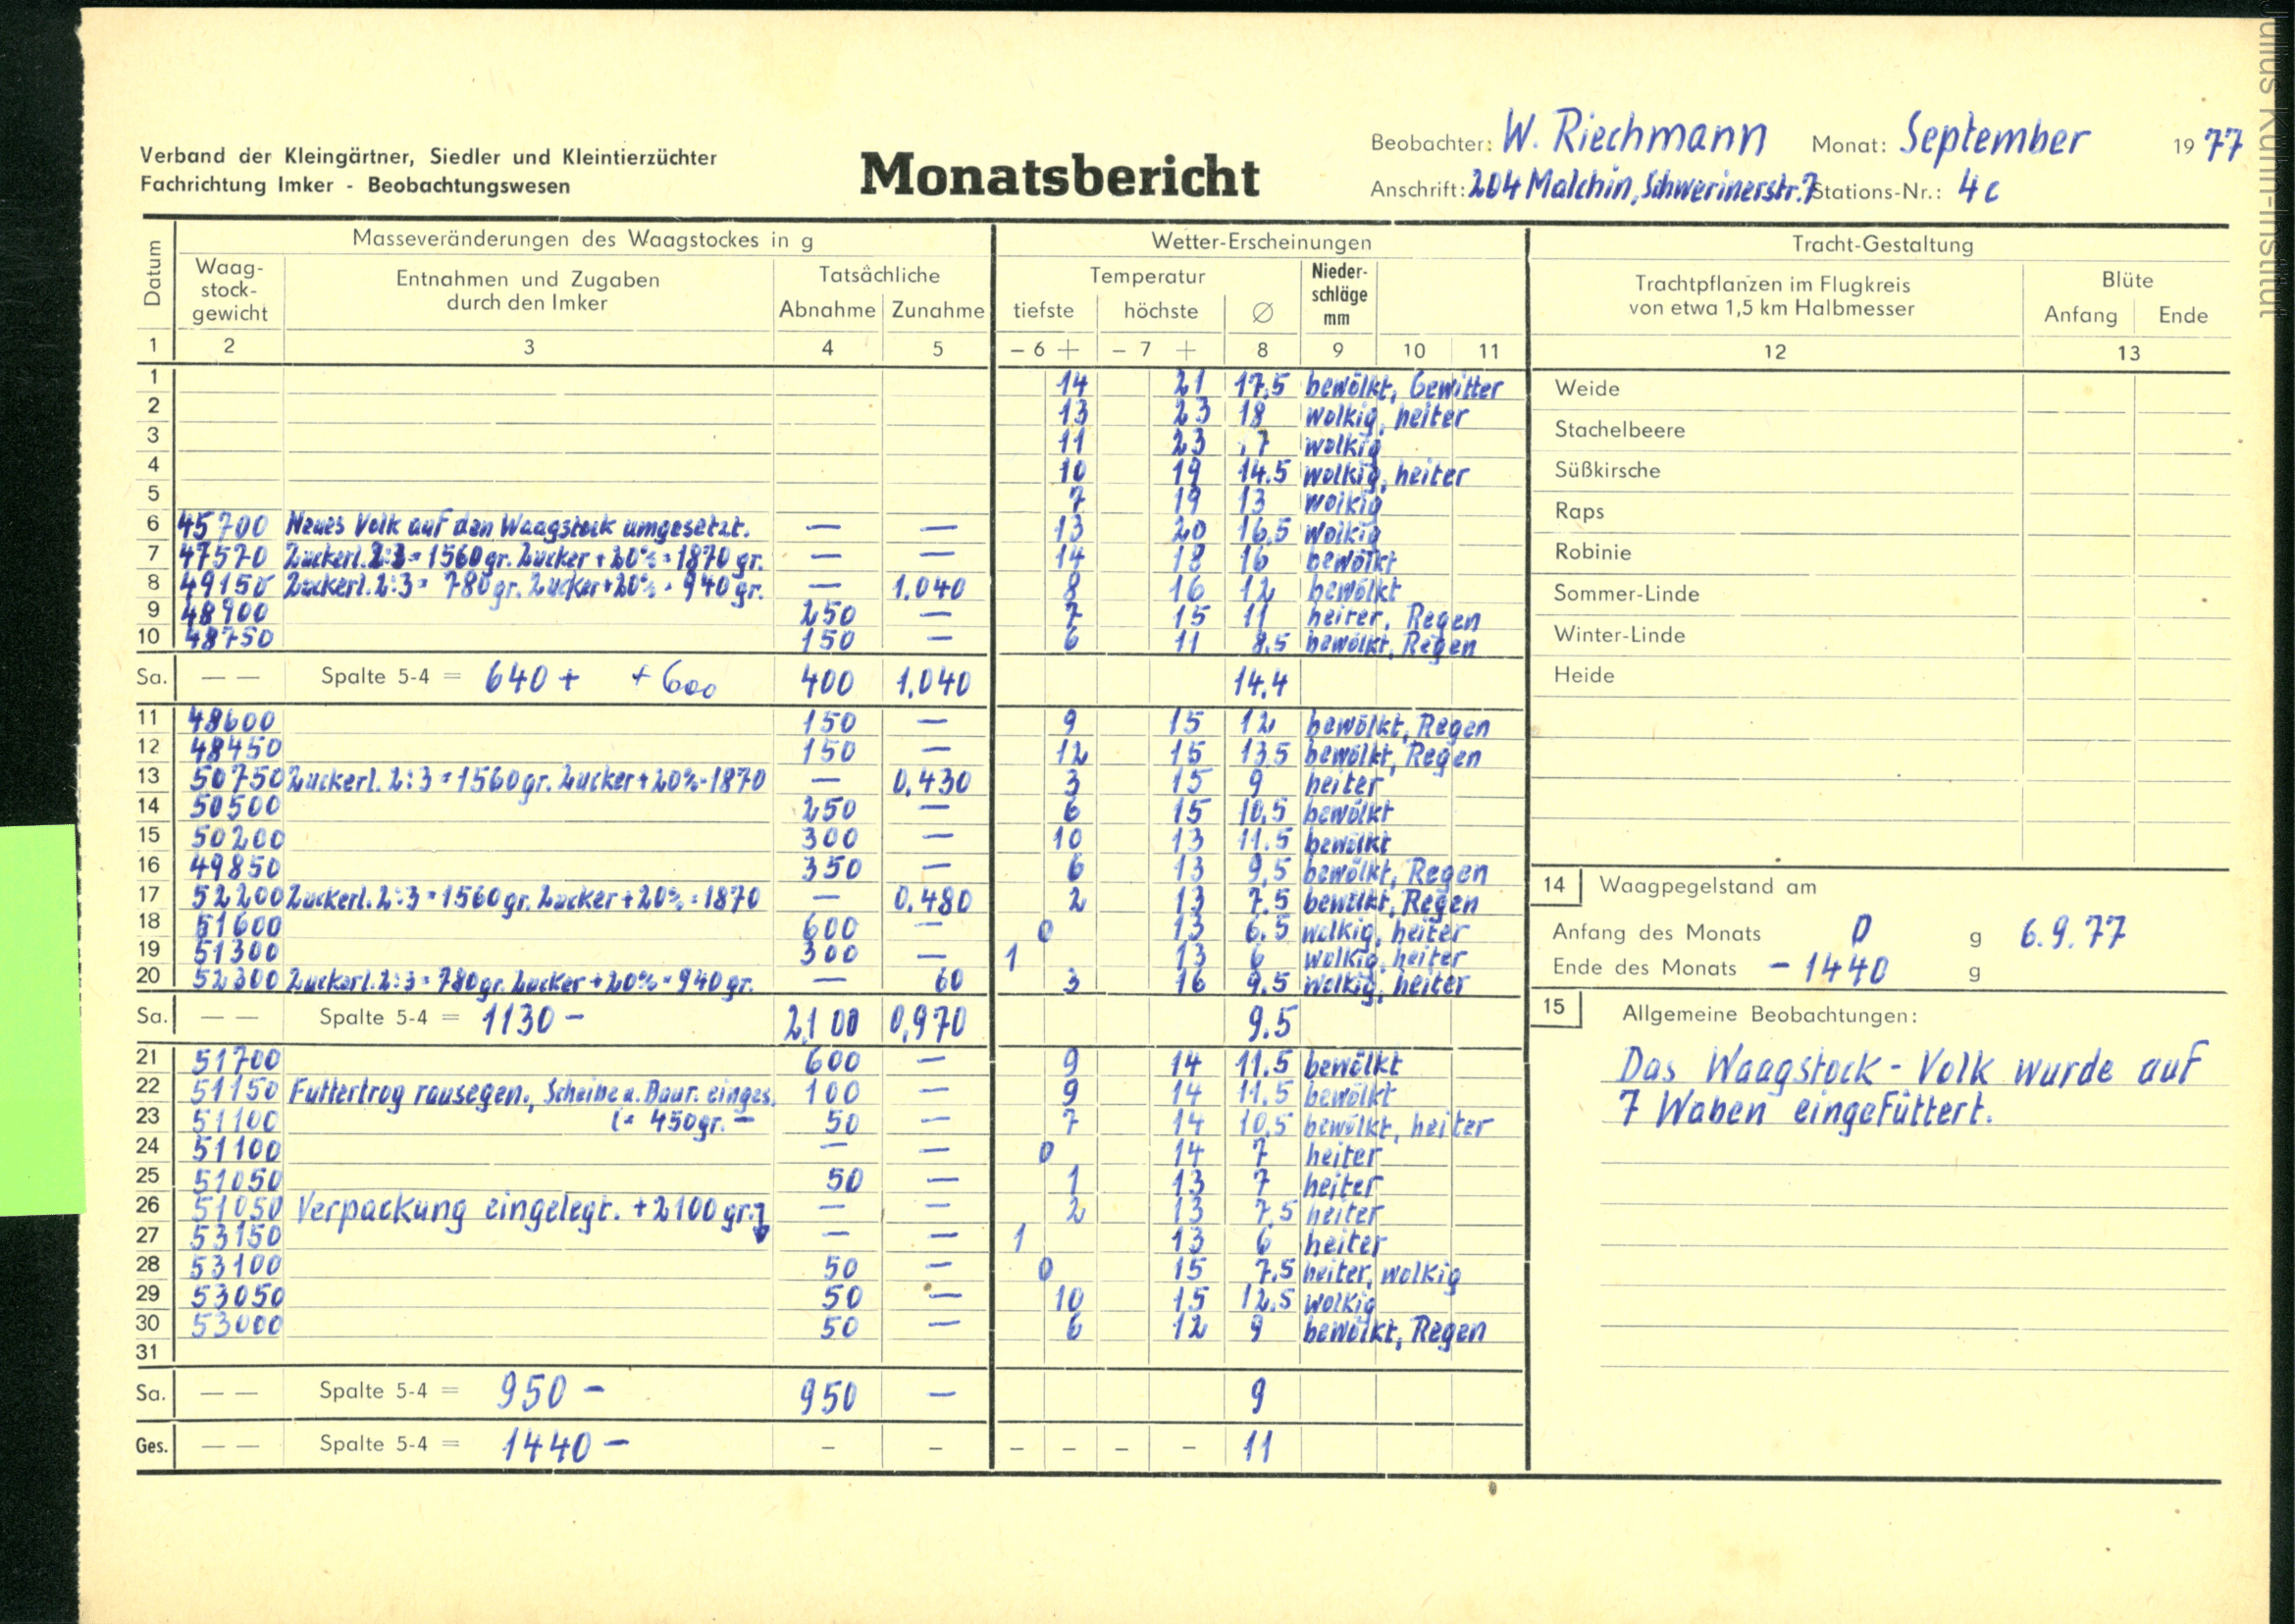 Julius Kühn-Institut
Verband der Kleingärtner, Siedler und Kleintierzüchter
Fachrichtung Imker - Beobachtungswesen
Monatsbericht
Beobachter: W. Riechmann Monat: September 1977
Anschrift: 204 Malchin, Schwerinerstr. 7 Stations-Nr.: 4c
Datum
Masseveränderungen des Waagstockes in g
Wetter-Erscheinungen
Tracht-Gestaltung
Waag-
stock-
gewicht
Entnahmen und Zugaben
durch den Imker
Tatsächliche
Abnahme Zunahme
Temperatur
tiefste höchste ∅
Nieder-
schläge
mm
Trachtpflanzen im Flugkreis
von etwa 1,5 km Halbmesser
Blüte
Anfang Ende
1 2 3 4 5 – 6 + – 7 + 8 9 10 11 12 13
1 14 21 17.5 bewölkt, Gewitter
2 13 23 18 wolkig, heiter
3 11 23 17 wolkig
4 10 19 14.5 wolkig, heiter
5 7 19 13 wolkig
6 45700 Neues Volk auf den Waagstock umgesetzt. — — 13 20 16.5 wolkig
7 47570 Zuckerl. 2:3 = 1560 gr. Zucker + 20% = 1870 gr. — — 14 18 16 bewölkt
8 49150 Zuckerl. 2:3 = 780 gr. Zucker + 20% = 940 gr. — 1.040 8 16 12 bewölkt
9 48900 250 — 7 15 11 heiter, Regen
10 48750 150 — 6 11 8.5 bewölkt, Regen
Sa. — — Spalte 5-4 = 640 + + 600 400 1.040 14.4
11 48600 150 — 9 15 12 bewölkt, Regen
12 48450 150 — 12 15 13.5 bewölkt, Regen
13 50750 Zuckerl. 2:3 = 1560 gr. Zucker + 20% = 1870 — 0.430 3 15 9 heiter
14 50500 250 — 6 15 10.5 bewölkt
15 50200 300 — 10 13 11.5 bewölkt
16 49850 350 — 6 13 9.5 bewölkt, Regen
17 52200 Zuckerl. 2:3 = 1560 gr. Zucker + 20% = 1870 — 0.480 2 13 7.5 bewölkt, Regen
18 51600 600 — 0 13 6.5 wolkig, heiter
19 51300 300 — 1 13 6 wolkig, heiter
20 52300 Zuckerl. 2:3 = 780 gr. Zucker + 20% = 940 gr. — 60 3 16 9.5 wolkig, heiter
Sa. — — Spalte 5-4 = 1130 – 2100 0,970 9.5
21 51700 600 — 9 14 11.5 bewölkt
22 51150 Futtertrog rausegen., Scheibe u. Baur. einges. 100 — 9 14 11.5 bewölkt
23 51100 (= 450 gr. – 50 — 7 14 10.5 bewölkt, heiter
24 51100 — — 0 14 7 heiter
25 51050 50 — 1 13 7 heiter
26 51050 Verpackung eingelegt. + 2100 gr. — — 2 13 7.5 heiter
27 53150 — — 1 13 6 heiter
28 53100 50 — 0 15 7.5 heiter, wolkig
29 53050 50 — 10 15 12.5 wolkig
30 53000 50 — 6 12 9 bewölkt, Regen
31
Sa. — — Spalte 5-4 = 950 – 950 — 9
Ges. — — Spalte 5-4 = 1440 – – – – – – – 11
Weide
Stachelbeere
Süßkirsche
Raps
Robinie
Sommer-Linde
Winter-Linde
Heide
14 Waagpegelstand am
Anfang des Monats 0 g 6.9.77
Ende des Monats – 1440 g
15 Allgemeine Beobachtungen:
Das Waagstock-Volk wurde auf
7 Waben eingefüttert.